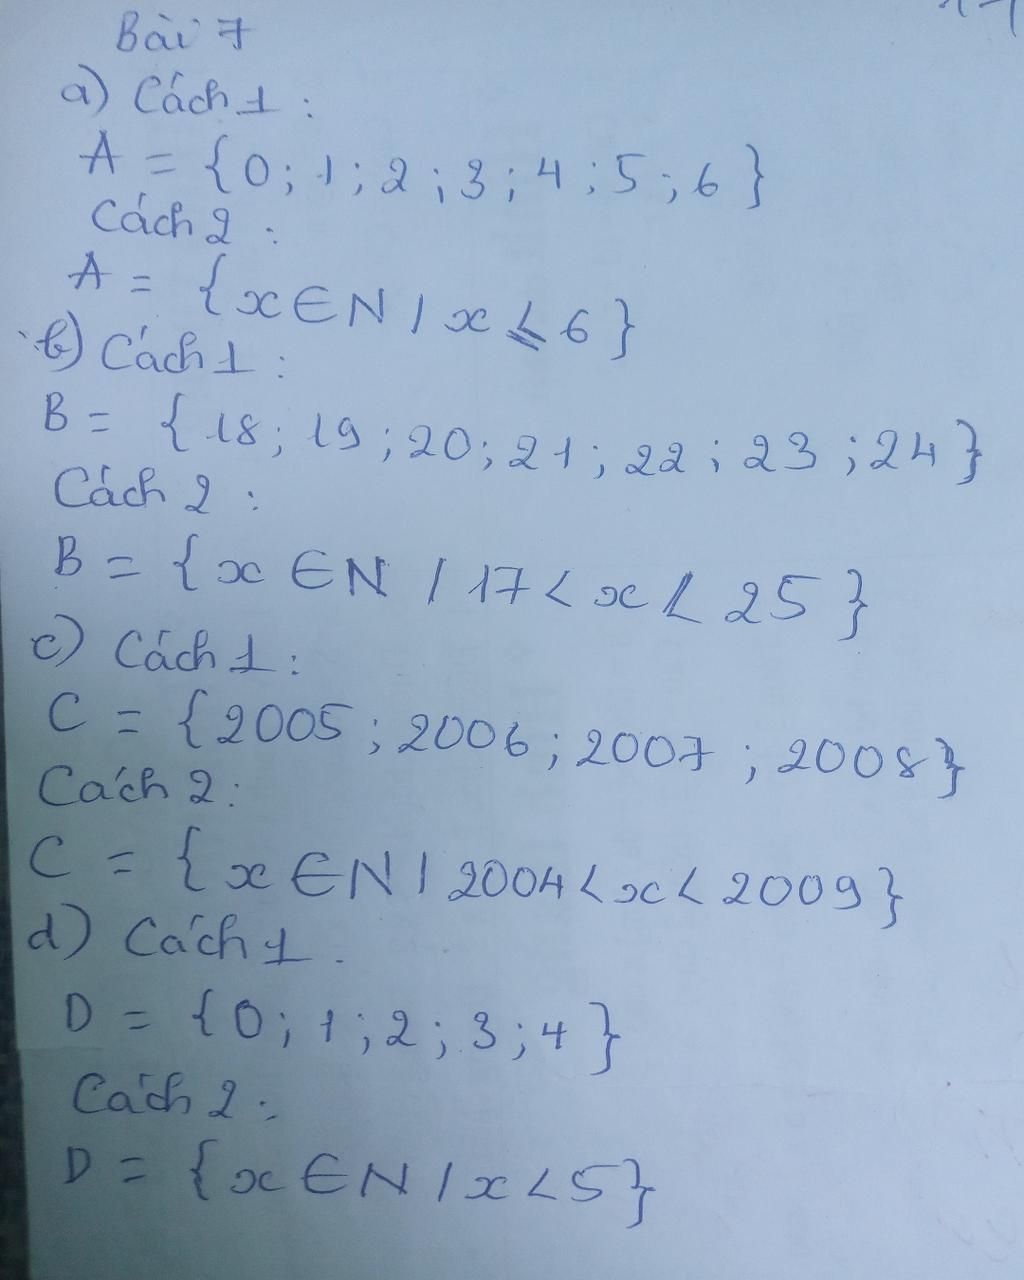 Bài 7
a) Cách 1 :
A = {0; 1; 2; 3; 4; 5; 6}
Cách 2 :
A = {x ∈ N / x ≤ 6}
b) Cách 1 :
B = {18; 19; 20; 21; 22; 23; 24}
Cách 2 :
B = {x ∈ N / 17 < x < 25}
c) Cách 1 :
C = {2005; 2006; 2007; 2008}
Cách 2 :
C = {x ∈ N / 2004 < x < 2009}
d) Cách 1.
D = {0; 1; 2; 3; 4}
Cách 2 :
D = {x ∈ N / x < 5}